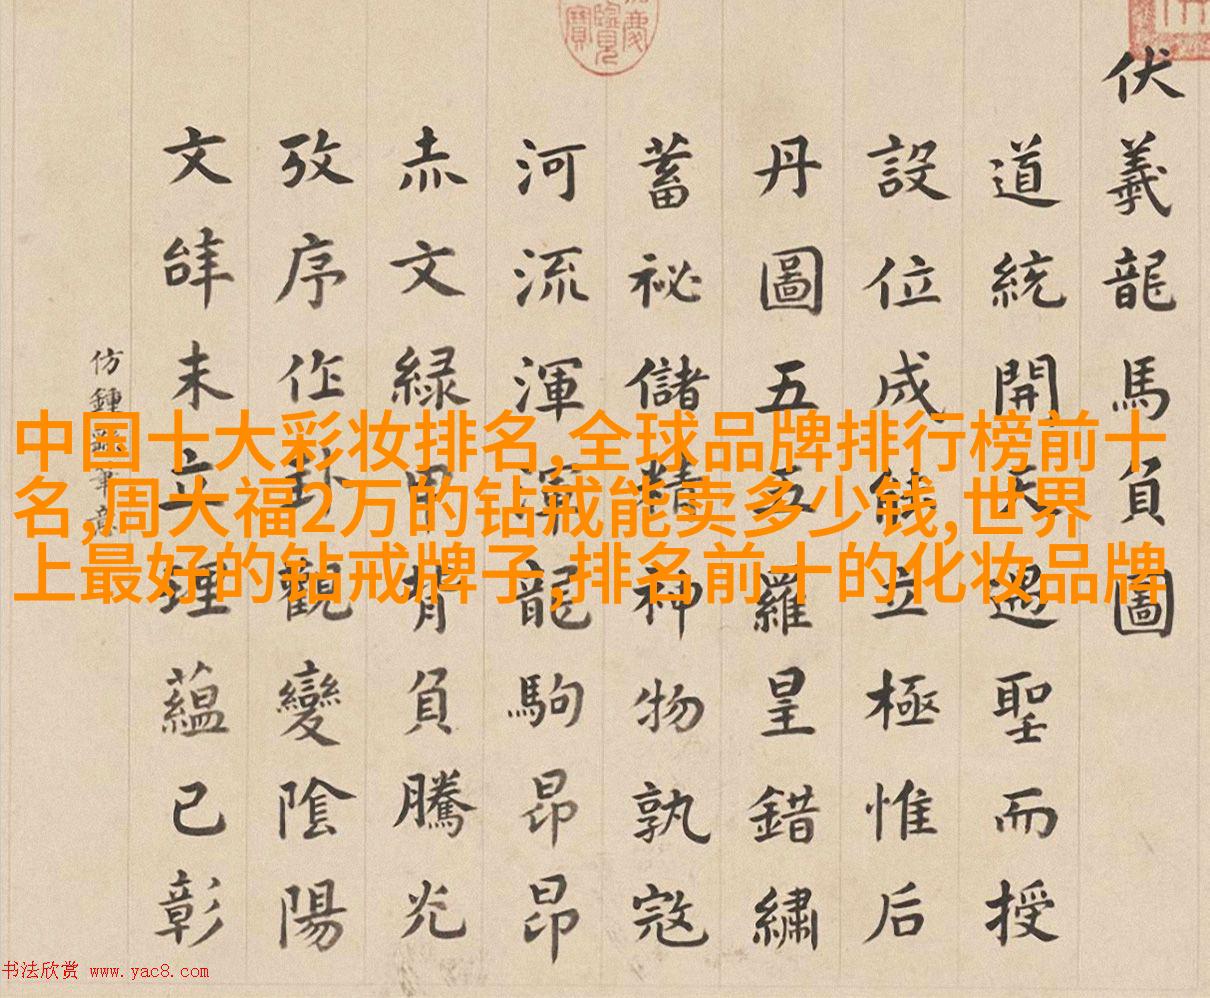 伏羲龍馬負圖
道統開天聖而授
設位成能立極惟后
丹圖五五羅皇錯繡
蓄祕儲精神物孰寇
河流渾龍駒昂昂
赤文緑甲背負騰光
攷序作卦觀變陰陽
文未立理蘊已彰
仿鍾繇筆意
慶覽寶
中国十大彩妆排名,全球品牌排行榜前十
名,周大福2万的钻戒能卖多少钱,世界
上最好的钻戒牌子,排名前十的化妆品牌
书法欣赏 www.yac8.com